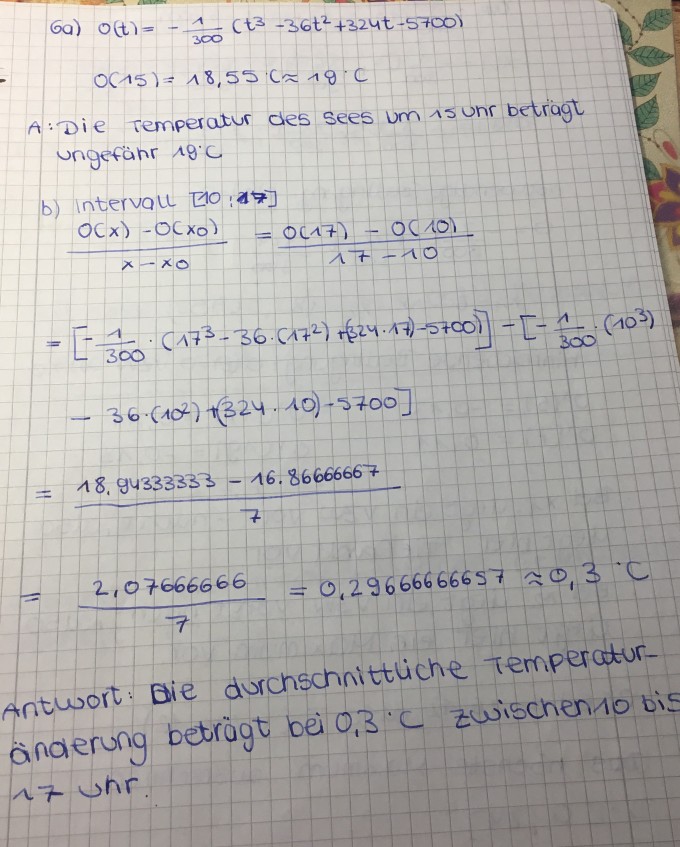 6a) O(t) = - 1/300 (t³ - 36t² + 324t - 5700)
O(15) = 18,55°C ≈ 19°C
A: Die Temperatur des Sees um 15 uhr beträgt
ungefähr 19°C
b) Intervall [10 ; 17]
(O(x) - O(x0))/(x - x0) = (O(17) - O(10))/(17 - 10)
= [- 1/300 · (17³ - 36 · (17²) + (324 · 17) - 5700)] - [- 1/300 · (10³)
- 36 · (10²) + (324 · 10) - 5700]
= (18,94333333 - 16.86666667)/7
= 2,07666666/7 = 0,29666666657 ≈ 0,3 °C
Antwort: Die durchschnittliche Temperatur-
änderung beträgt bei 0,3°C zwischen 10 bis
17 uhr.